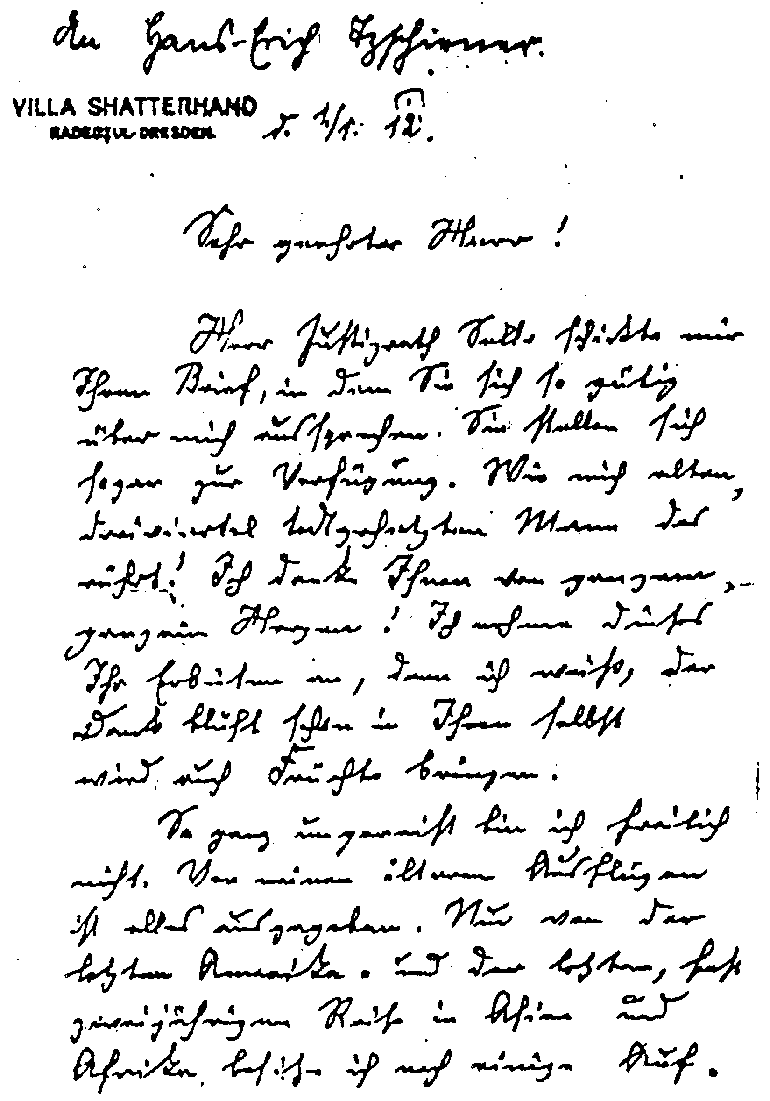 An Hans-Erich Tzschirner.
VILLA SHATTERHAND
RADEBEUL-DRESDEN.
d. 1/1. 12.
Sehr geehrter Herr!
Herr Justizrath Sello schickte mir
Ihren Brief, in dem Sie sich so gütig
über mich aussprechen. Sie stellen sich
sogar zur Verfügung. Wie mich alten,
dreiviertel todtgehetzten Mann das
rührt! Ich danke Ihnen von ganzem,
ganzem Herzen! Ich nehme dieses
Ihr Erbieten an, denn ich weiß, der
Dank blüht schon in Ihnen selbst
wird auch Früchte bringen.
So ganz ungereist bin ich freilich
nicht. Von meinen älteren Ausflügen
ist alles ausgegeben. Nur von der
letzten Amerika- und der letzten, fast
zweijährigen Reise in Asien und
Afrika besitze ich noch einige Auf-